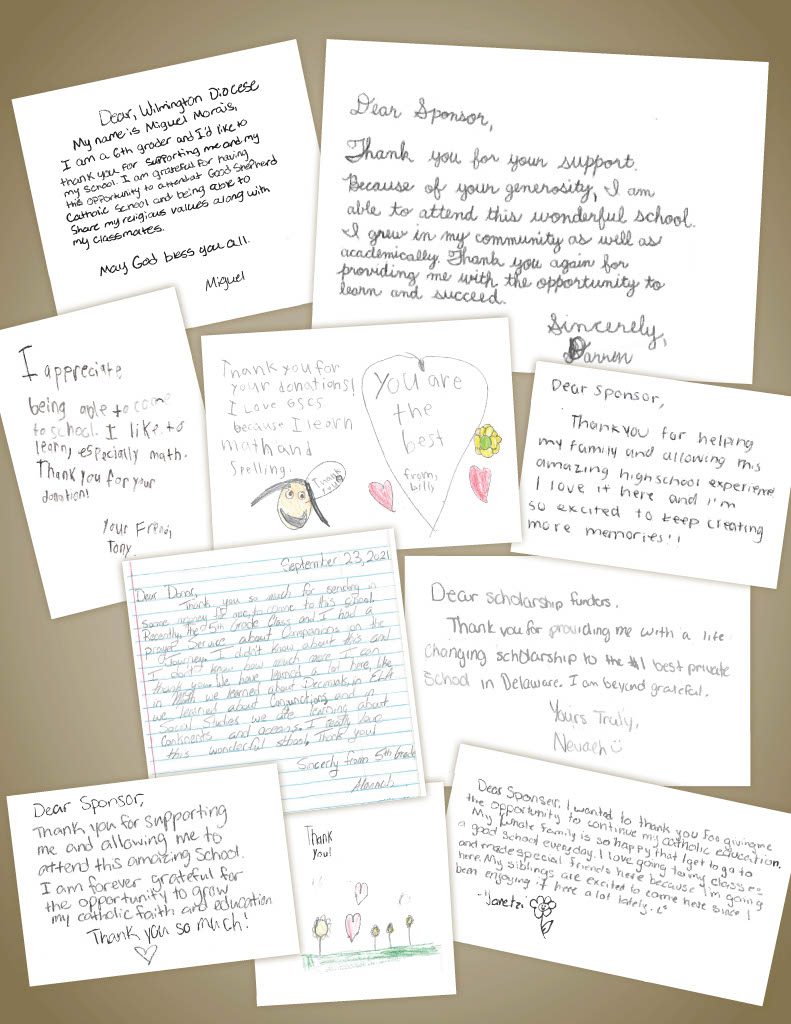 Dear, Wilmington Diocese
My name is Miguel Morais,
I am a 6th grader and I'd like to
thank you for supporting me and my
my school. I am grateful for having
this opportunity to attend at Good Shepherd
Catholic School and being able to
share my religious values along with
my classmates.
May God bless you all.
Miguel
Dear Sponsor,
Thank you for your support.
Because of your generosity, I am
able to attend this wonderful school.
I grew in my community as well as
academically. Thank you again for
providing me with the opportunity to
learn and succeed.
Sincerely,
Darren
I appreciate
being able to come
to school. I like to
learn, especially math.
Thank you for your
donation!
Your Friend,
Tony
Thank you for
your donations!
I Love GSCS
because I learn
math and
Spelling.
Thank
you!
You are
the
best
from,
billy
Dear sponsor,
Thankyou for helping
my family and allowing this
amazing highschool experience
I love it here and I'm
so excited to keep creating
more memories!!
September 23, 2021
Dear Donor,
Thank you so much for sending in
some money for me to come to this school.
Recently, the 5th Grade Class and I had a
prayer Service about Companions on the
Journey. I didn't know about this and
I don't know how much more I can
thank you. We have learned a lot here, like
in Math we learned about Decimals, in ELA
we learned about Conjunctions, and in
Social Studies we are learning about
Continents and oceans. I really love
this wonderful school, Thank you!
Sincerly from 5th Grade
Dear scholarship funders.
Thank you for providing me with a life
changing scholarship to the #1 best private
School in Delaware. I am beyond grateful.
Yours Truly,
Nevaeh
Dear Sponsor,
Thank you for supporting
me and allowing me to
attend this amazing School.
I am forever grateful for
the opportunity to grow
my catholic faith and education
Thank you so much!
Thank
You!
Dear Sponser. I wanted to thank you for giving me
the opportunity to continue my catholic education.
My whole family is so happy that I get to go to
a good school everyday. I love going to my classes
and made special friends here because I'm going
here. My siblings are excited to come here since I
been enjoying it here a lot lately.
-"Janetzi"